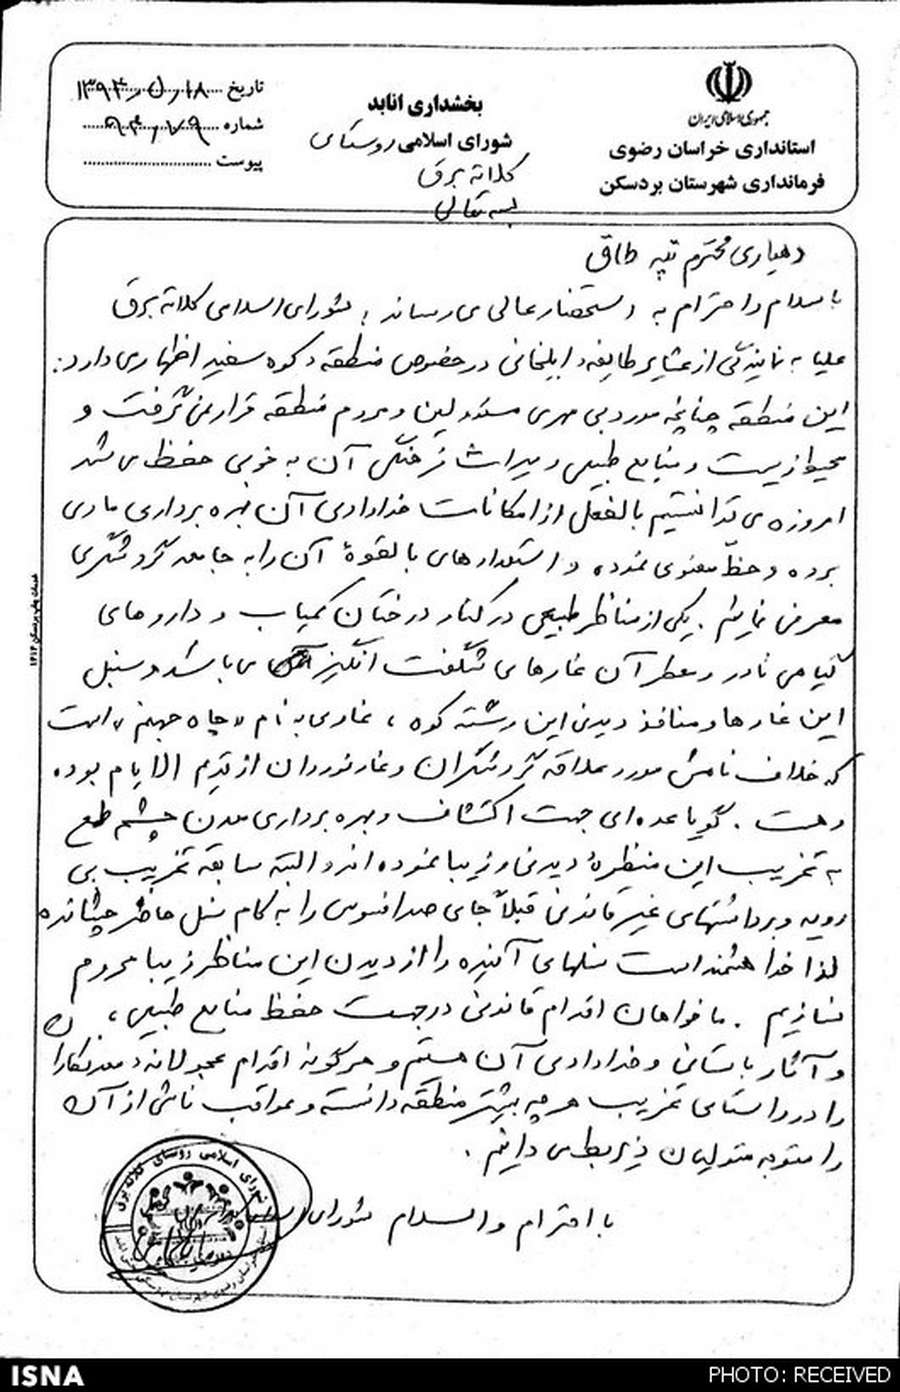 جمهوری اسلامی ایران
استانداری خراسان رضوی
فرمانداری شهرستان بردسکن
بخشداری انابد
شورای اسلامی روستای
کلاته برق
بسمه تعالی
تاریخ ۱۳۹۴/۵/۱۸
شماره ۹۴/۷۹
پیوست
دهیاری محترم تپه طاق
با سلام و احترام به استحضار عالی می رساند، شورای اسلامی کلاته برق
علیا به نمایندگی از عشایر طایفه ایلخانی در خصوص منطقه کوه سفید اظهار می دارد:
این منطقه چنانچه مورد بی مهری مسئولین و مردم منطقه قرار نمی گرفت و
محیط زیست و منابع طبیعی و میراث فرهنگی آن به خوبی حفظ می شد
امروزه می توانستیم بالفعل از امکانات خدادادی آن بهره برداری مادی
برده و حظ معنوی نموده و استعدادهای بالقوهٔ آن را به جامعه گردشگری
معرفی نماییم. یکی از مناظر طبیعی در کنار درختان کمیاب و داروهای
گیاهی نادر و معطر آن غارهای شگفت انگیز می باشد و سنبل
این غارها و منافذ دیدنی این رشته کوه، غاری به نام «چاه جهنم» است
که خلاف نامش مورد علاقه گردشگران و غارنوردان از قدیم الایام بوده
و هست. گویا عده ای جهت اکتشاف و بهره برداری معدن چشم طمع
به تخریب این منظرهٔ دیدنی و زیبا نموده اند و البته سابقه تخریب بی
رویه و برداشتهای غیر قانونی قبلاً جای صد افسوس را به کام نسل حاضر چشانده
لذا خواهشمند است نسلهای آینده را از دیدن این مناظر زیبا محروم
نسازیم. ما خواهان اقدام قانونی در جهت حفظ منابع طبیعی،
و آثار باستانی و خدادادی آن هستیم و هرگونه اقدام عجولانه معدنکاران
را در راستای تخریب هر چه بیشتر منطقه دانسته و عواقب ناشی از آن
را متوجه متولیان ذیربط می دانیم.
با احترام والسلام شورای اسلامی
شورای اسلامی روستای کلاته برق
خدمات چاپ بردسکن
ISNA
PHOTO: RECEIVED